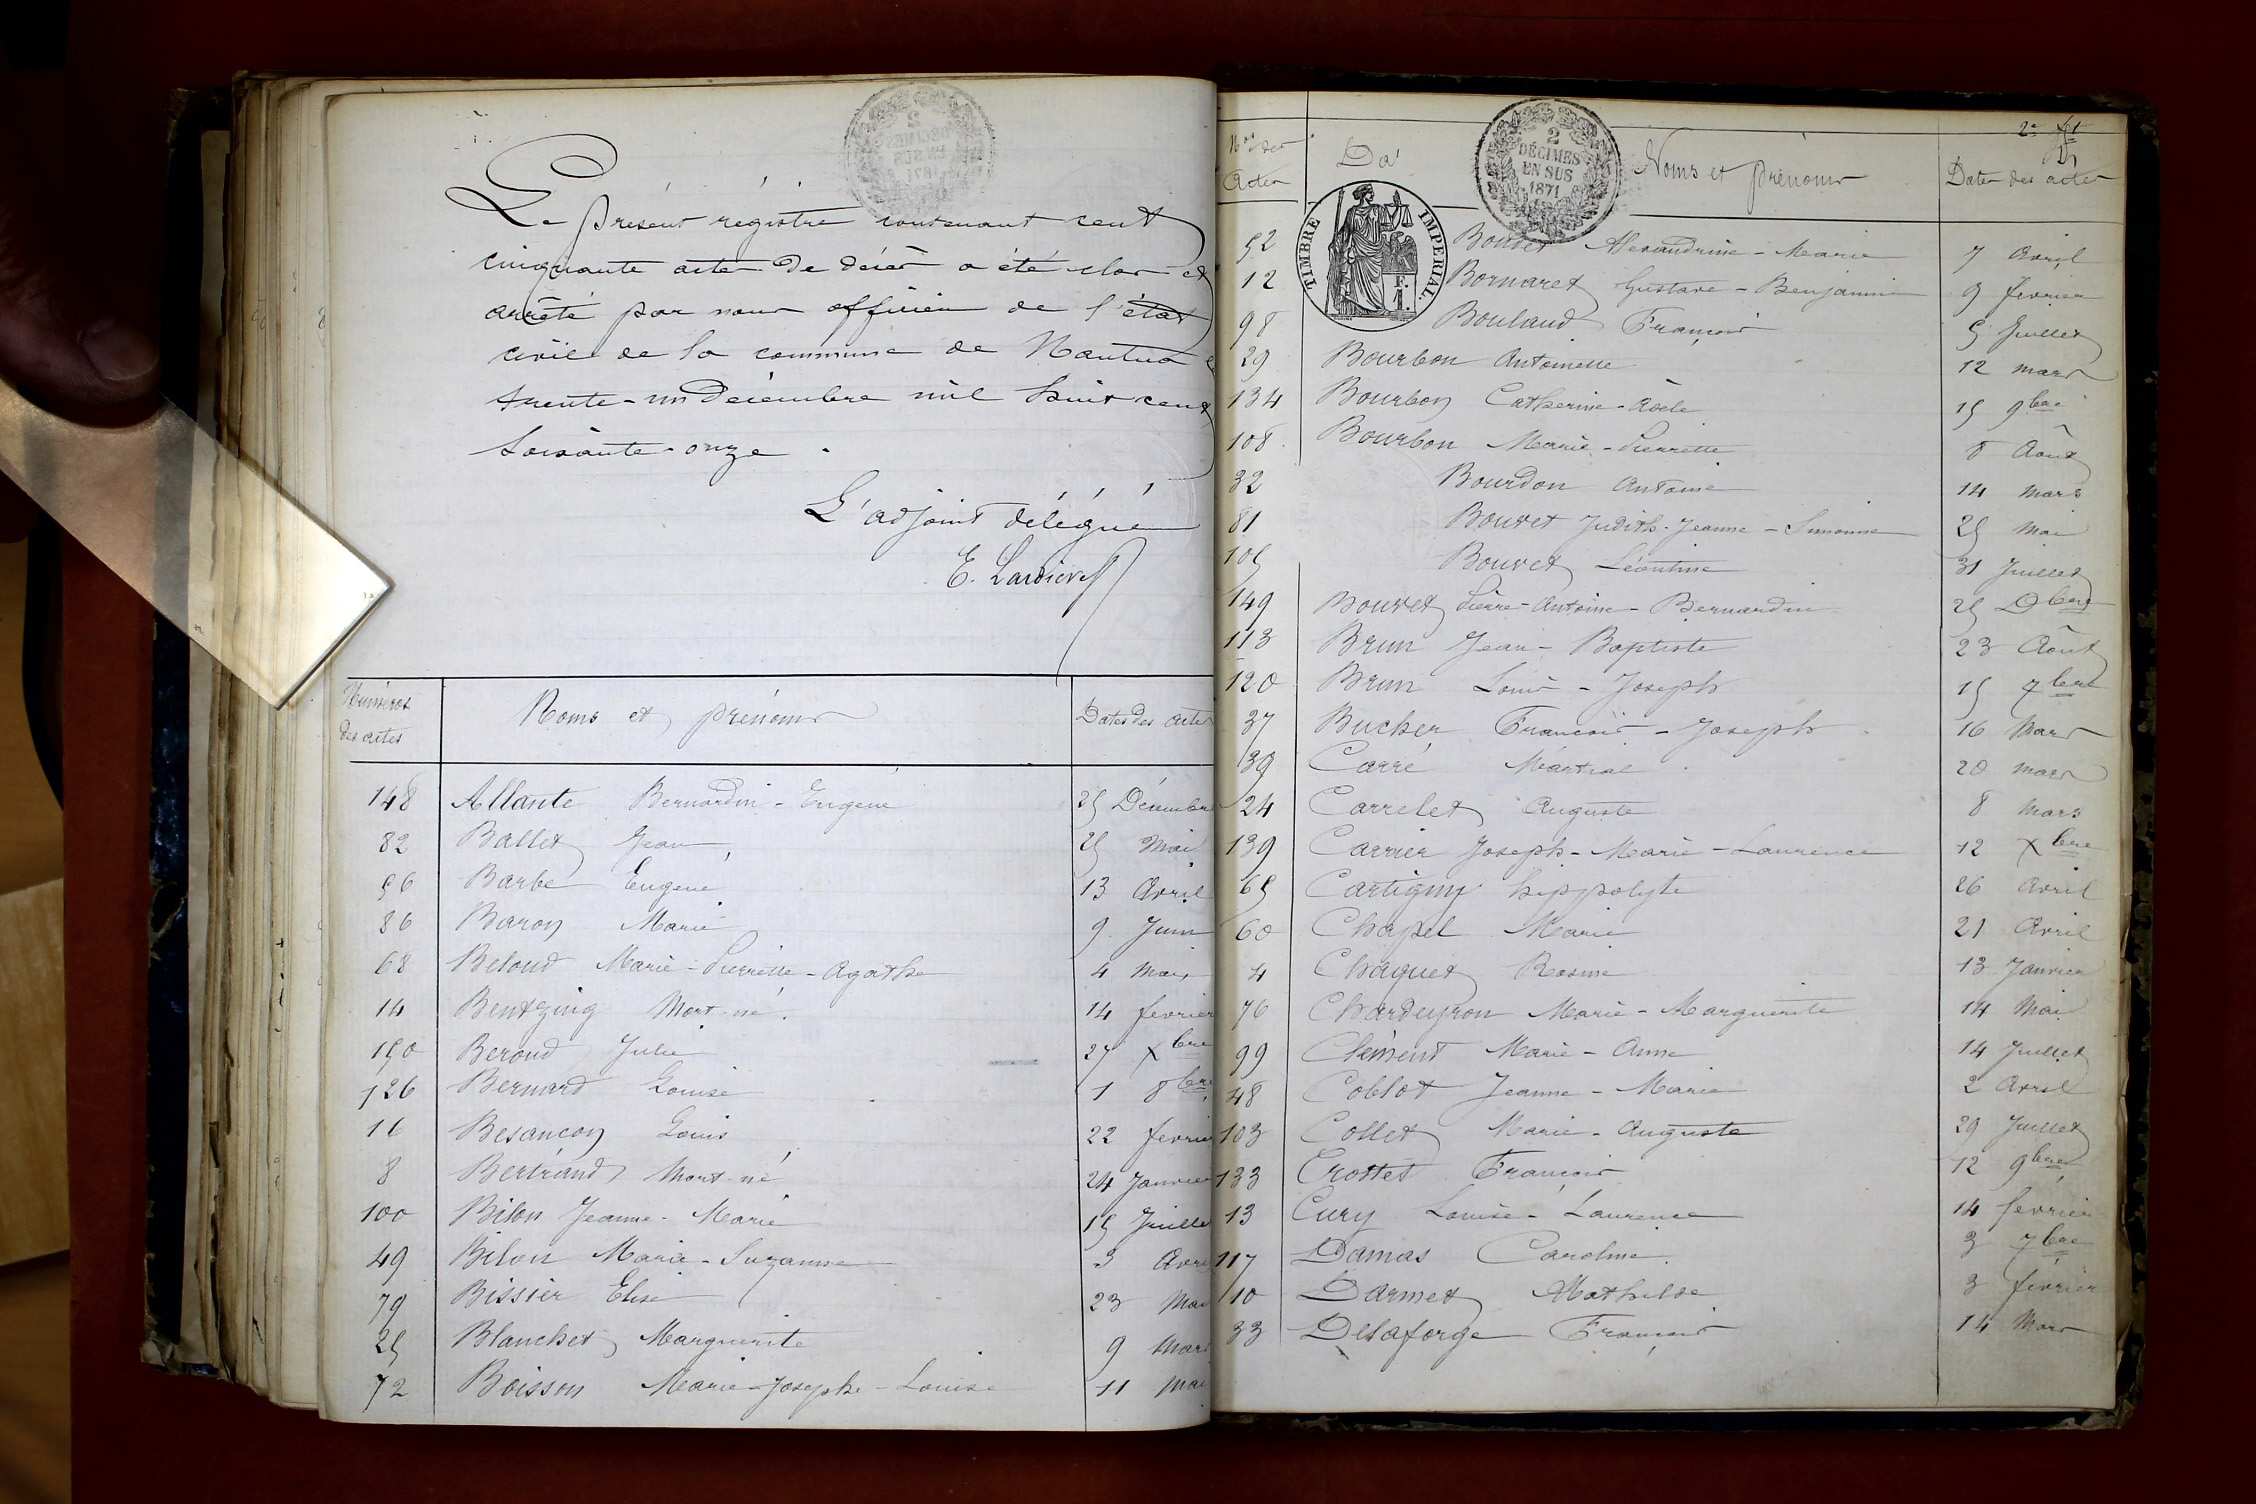 Le présent régistre contenant cent
cinquante actes de décès a été clos et
arrêté par nous officier de l'état
civil de la commune de Nantua
trente-un Décembre mil huit cent
soixante-onze.
L'adjoint délégué
Numéros des actes
Noms et prénoms
Dates des actes
148 Allante Bernardin-Eugène 25 Décembre
82 Ballet Jean 25 Mai
56 Barbe Eugène 13 Avril
86 Baron Marie 9 Juin
68 Beloud Marie-Pierrette-Agathe 4 Mai
14 Bentzing Mort-né. 14 février
150 Beroud Julie 27 Xbre
126 Bernard Louise 1 8bre
16 Besançon Louis 22 février
8 Bertrand Mort-né 24 Janvier
100 Bilon Jeanne-Marie 15 Juillet
49 Bilon Marie-Suzanne 3 Avri
79 Bissier Elise 23 Mai
25 Blanchet Marguerite 9 Mars
72 Boisson Marie-Josephe-Louise 11 Mai
2
DÉCIMES
EN SUS
1871
TIMBRE IMPÉRIAL.
F.
1.
Nos des Actes
Noms et prénoms
Dates des actes
52 Alexandrine-Marie 7 Avril
12 Bornaret Gustave-Benjamin 9 février
98 Boulaud François 5 Juillet
29 Bourbon Antoinette 12 mars
134 Bourbon Catherine-Adèle 15 9bre
108 Bourbon Marie-Pierrette 8 Août
32 Bourdon Antoine 14 Mars
81 Bouvet Judith-Jeanne-Simonne 25 Mai
105 Bouvet Léontine 31 Juillet
149 Bouvet Pierre-Antoine-Bernardin 25 Dbre
113 Brun Jean-Baptiste 23 Août
120 Brun Louis-Joseph 15 7bre
37 Bucher François-Joseph 16 Mars
39 Carré Martial 20 mars
24 Carrelet Auguste 8 Mars
139 Carrier Joseph-Marie-Laurence 12 Xbre
65 Cartigny hyppolyte 26 Avril
60 Chapel Marie 21 Avril
4 Chaquet Rosine 13 Janvier
76 Chardeyron Marie-Marguerite 14 Mai
99 Clément Marie-Anne 14 Juillet
48 Coblot Jeanne-Marie 2 Avril
103 Collet Marie-Auguste 29 Juillet
133 Crottet François 12 9bre
13 Cury Louise-Laurence 14 février
117 Damas Caroline 3 7bre
10 Darmet Mathilde 3 février
33 Delaforge François 14 Mars